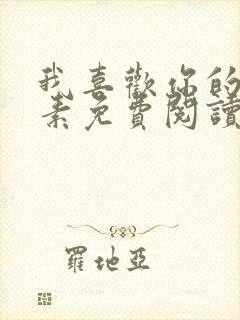 我喜歡你的
素免費閱讀
羅地亞